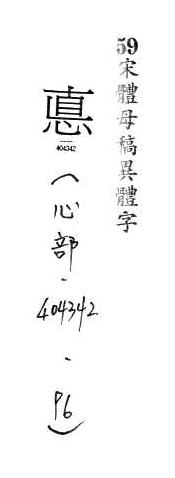 59宋體母稿異體字
悳
404342
(心部-404342-P6)